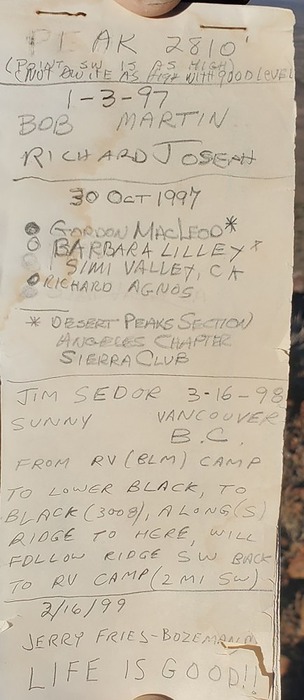 PEAK 2810'
(POINT SW IS AS HIGH)
(NOT QUITE AS HIGH WITH GOOD LEVEL
1-3-97
BOB MARTIN
RICHARD JOSEPH
30 OCT 1997
GORDON MACLEOD*
BARBARA LILLEY*
SIMI VALLEY, CA
RICHARD AGNOS
* DESERT PEAKS SECTION
ANGELES CHAPTER
SIERRA CLUB
JIM SEDOR 3-16-98
SUNNY VANCOUVER
B.C.
FROM RV (BLM) CAMP
TO LOWER BLACK, TO
BLACK (3008), ALONG (S)
RIDGE TO HERE, WILL
FOLLOW RIDGE SW BACK
TO RV CAMP (2 MI SW)
2/16/99
JERRY FRIES-BOZEMAN
LIFE IS GOOD!!